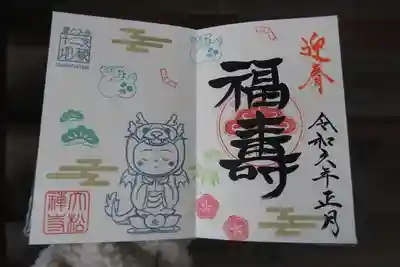 迎春
福壽
令和六年正月
大松
禅寺